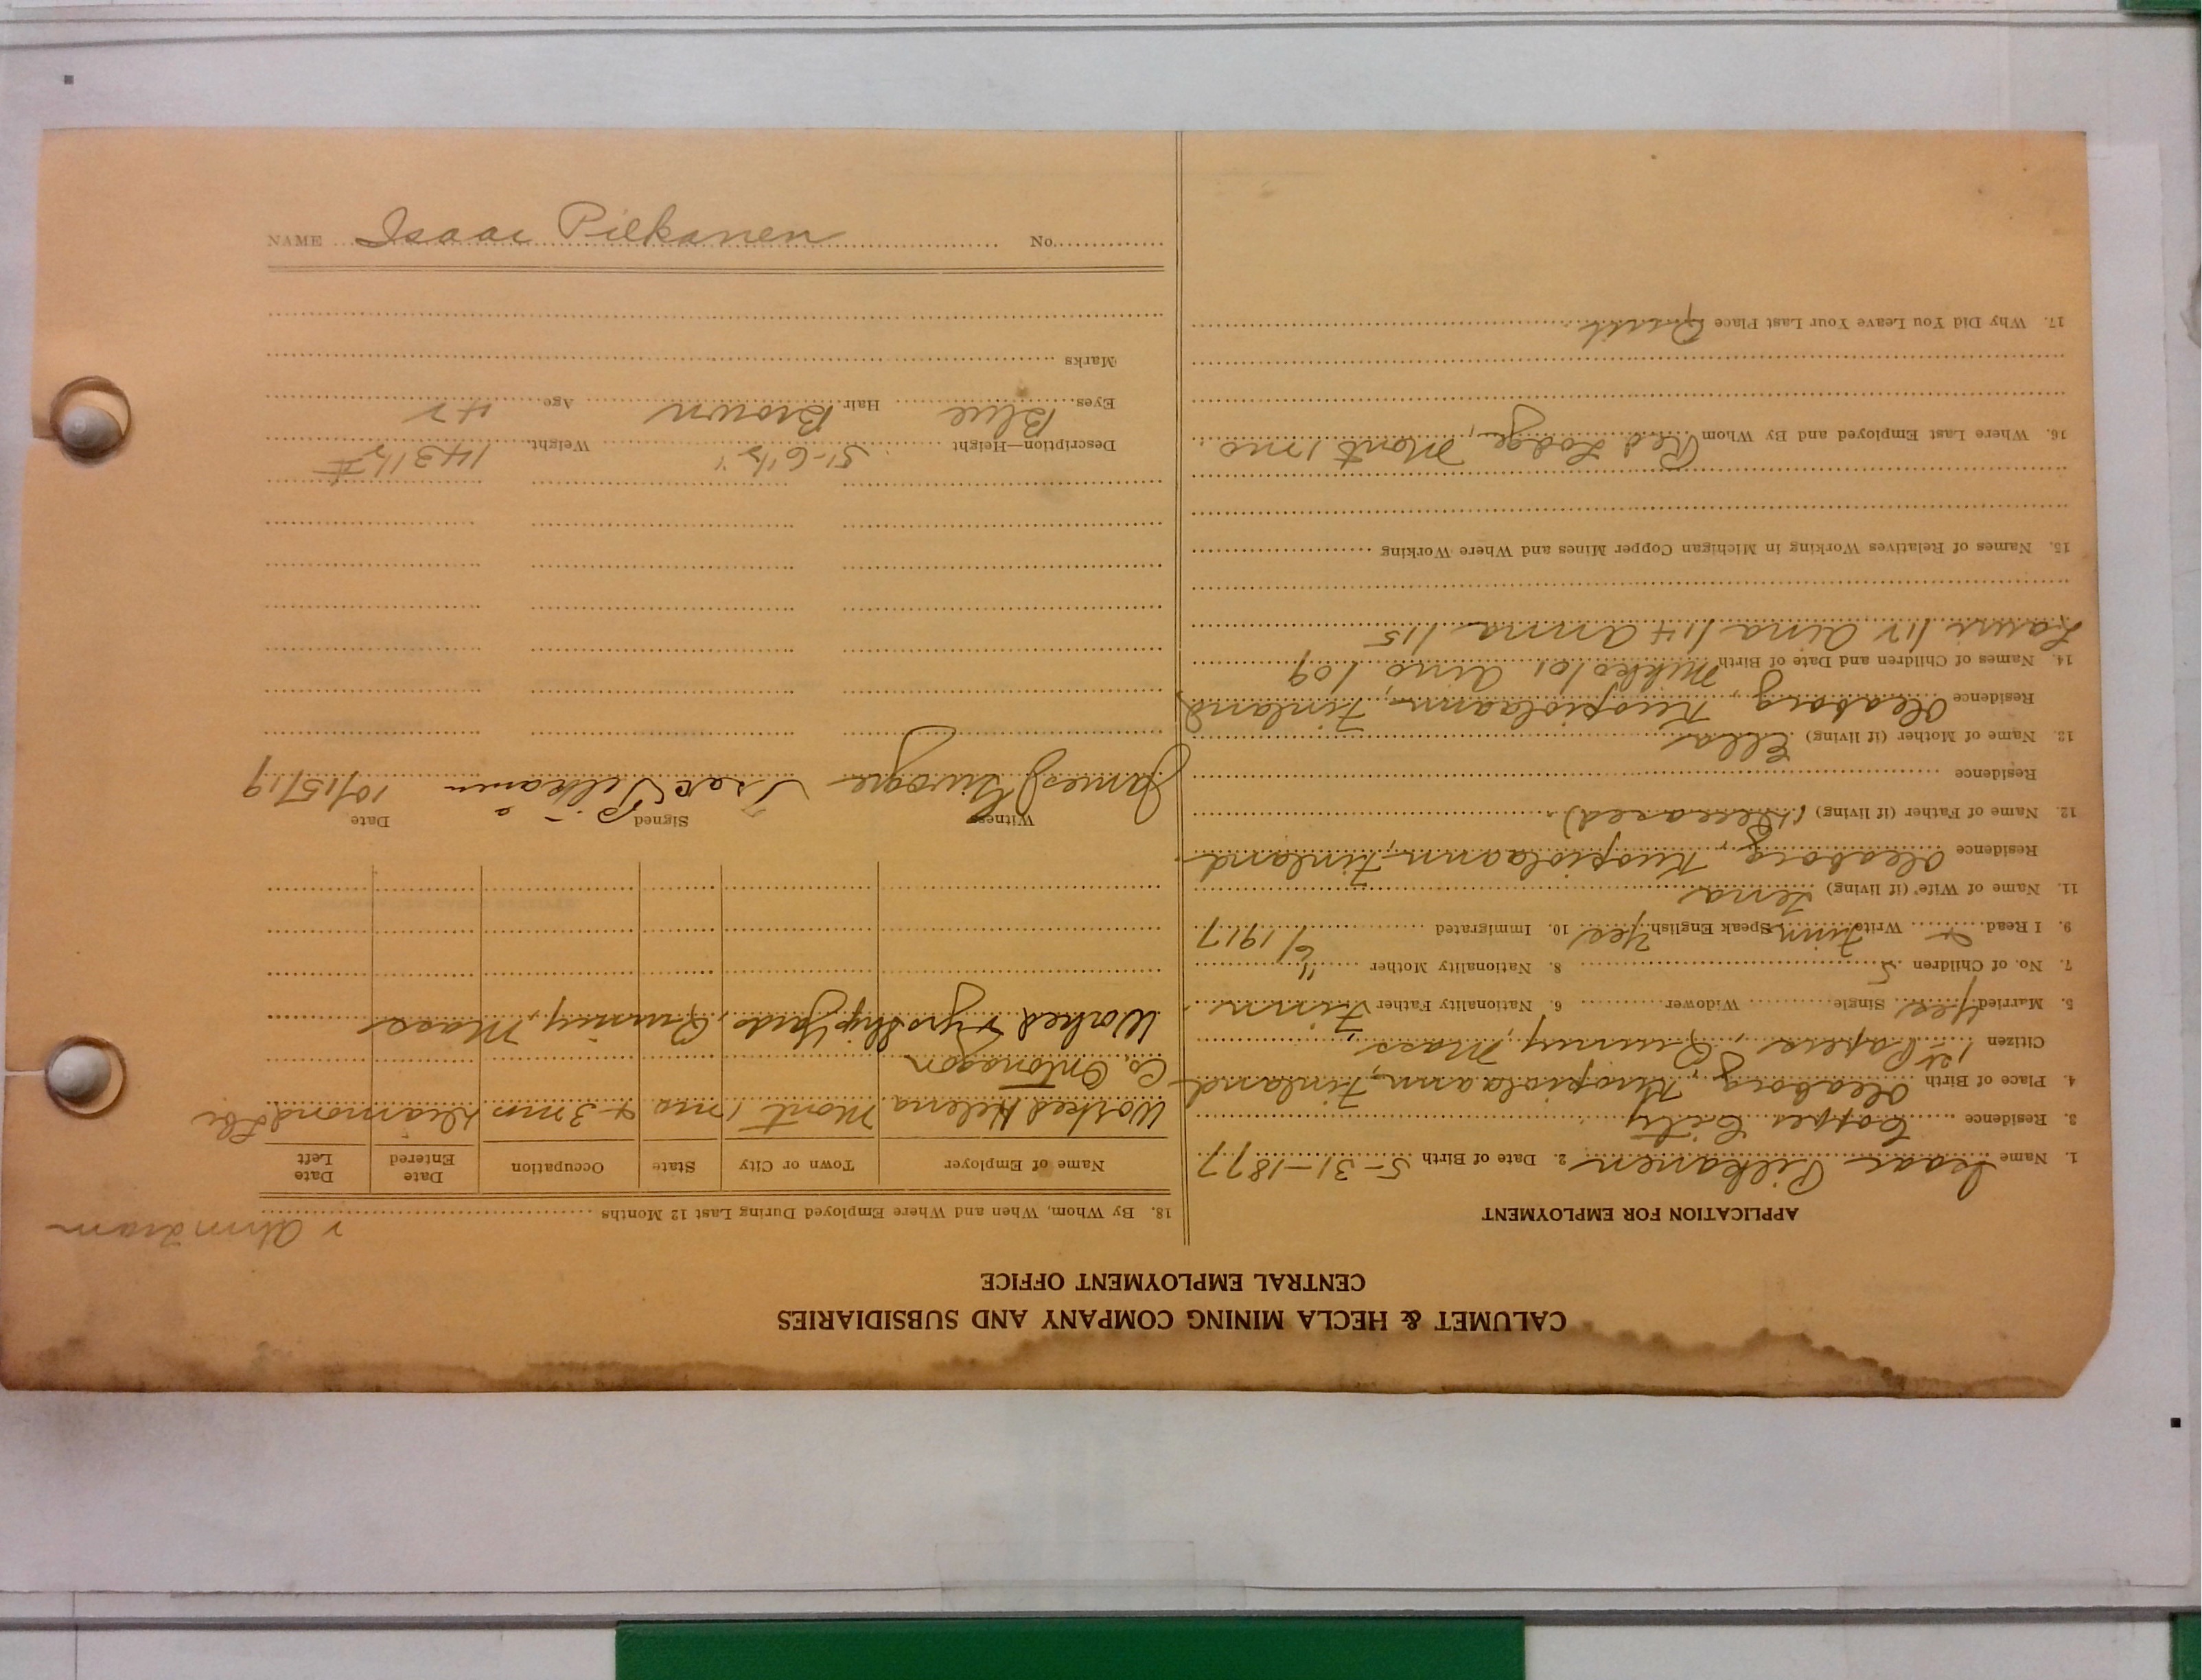 CALUMET & HECLA MINING COMPANY AND SUBSIDIARIES
CENTRAL EMPLOYMENT OFFICE
APPLICATION FOR EMPLOYMENT
1. Name Isaac Pilkanen 2. Date of Birth 5-31-1877
3. Residence Copper City
4. Place of Birth Oleaborg, Kuopiolaann, Finland
Citizen 1st Papers, Quincy, Mass
5. Married Yes Single Widower 6. Nationality Father Finn
7. No. of Children 5 8. Nationality Mother "
9. I Read & Write Finn Speak English Yes 10. Immigrated 6/1917
11. Name of Wife (if living) Lena
Residence Oleaborg, Kuopiolaann, Finland
12. Name of Father (if living) (Deceased)
Residence
13. Name of Mother (if living) Ella
Residence Oleaborg, Kuopiolaann, Finland
14. Names of Children and Date of Birth Mikko/01 Aino/09
Lauri/12 Aina/14 Anna/15
15. Names of Relatives Working in Michigan Copper Mines and Where Working
16. Where Last Employed and By Whom Red Lodge, Mont 1 mo
17. Why Did You Leave Your Last Place Quit
18. By Whom, When and Where Employed During Last 12 Months
Name of Employer Town or City State Occupation Date Entered Date Left
Worked Helena Mont 1 mo & 3 mo Diamond
Co. Ontonagon
Worked Ship Yards, Quincy, Mass
Witness Signed Date
James 10/15/19
Description—Height 5'-6 1/2" Weight 143 1/2 #
Eyes Blue Hair Brown Age 42
Marks
NAME Isaac Pilkanen No.